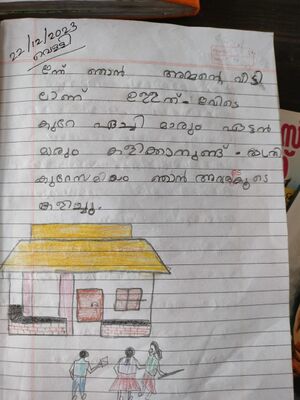 22/12/2023
വെള്ളി
ഇന്ന് ഞാൻ അമ്മന്റെ വീട്ടി
ലാണ് ഉള്ളത്. ഇവിടെ
കുറേ ഏച്ചി മാരും ഏട്ടൻ
മാരും കളിക്കാനുണ്ട്.
കുറേസമയം ഞാൻ അവരുകൂടെ
കളിച്ചു.